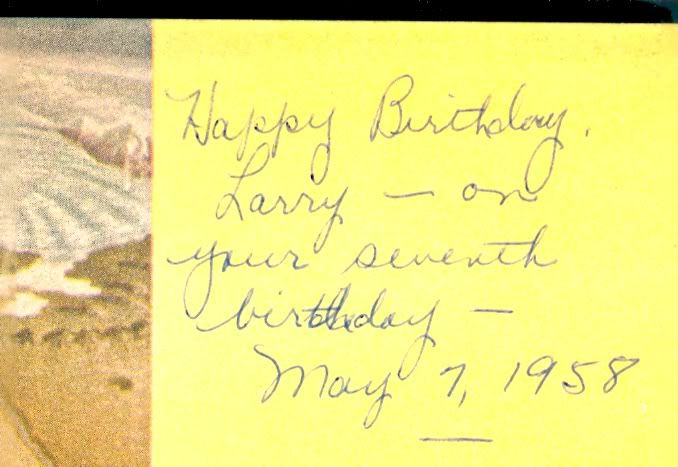 Happy Birthday,
Larry — on
your seventh
birthday —
May 7, 1958